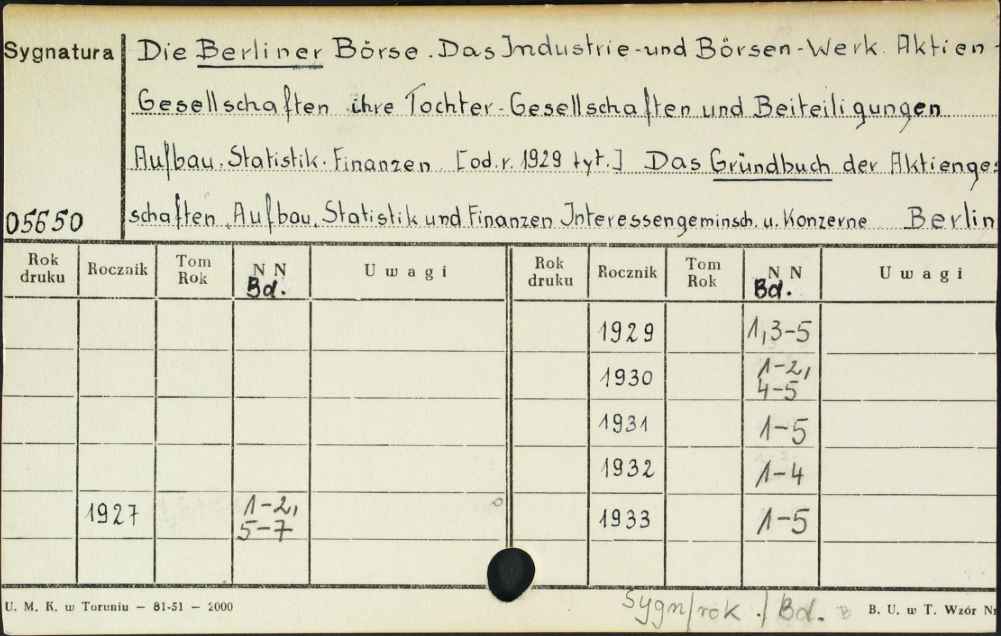 Sygnatura Die Berliner Börse. Das Industrie- und Börsen-Werk. Aktien-
Gesellschaften ihre Tochter-Gesellschaften und Beiteiligungen
Aufbau. Statistik. Finanzen [od. r. 1929 tyt.] Das Gründbuch der Aktienge-
05650 schaften, Aufbau, Statistik und Finanzen Interessengeminsch. u. Konzerne Berlin
Rok druku Rocznik Tom Rok N N Bd. Uwagi Rok druku Rocznik Tom Rok N N Bd. Uwagi
1929 1,3-5
1930 1-2, 4-5
1931 1-5
1932 1-4
1927 1-2, 5-7 1933 1-5
U. M. K. w Toruniu — 81-51 — 2000 Sygn/rok ./Bd. B B. U. w T. Wzór